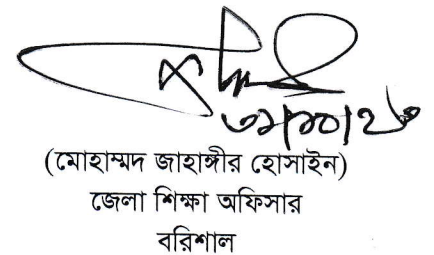 (মোহাম্মদ জাহাঙ্গীর হোসাইন)
জেলা শিক্ষা অফিসার
বরিশাল